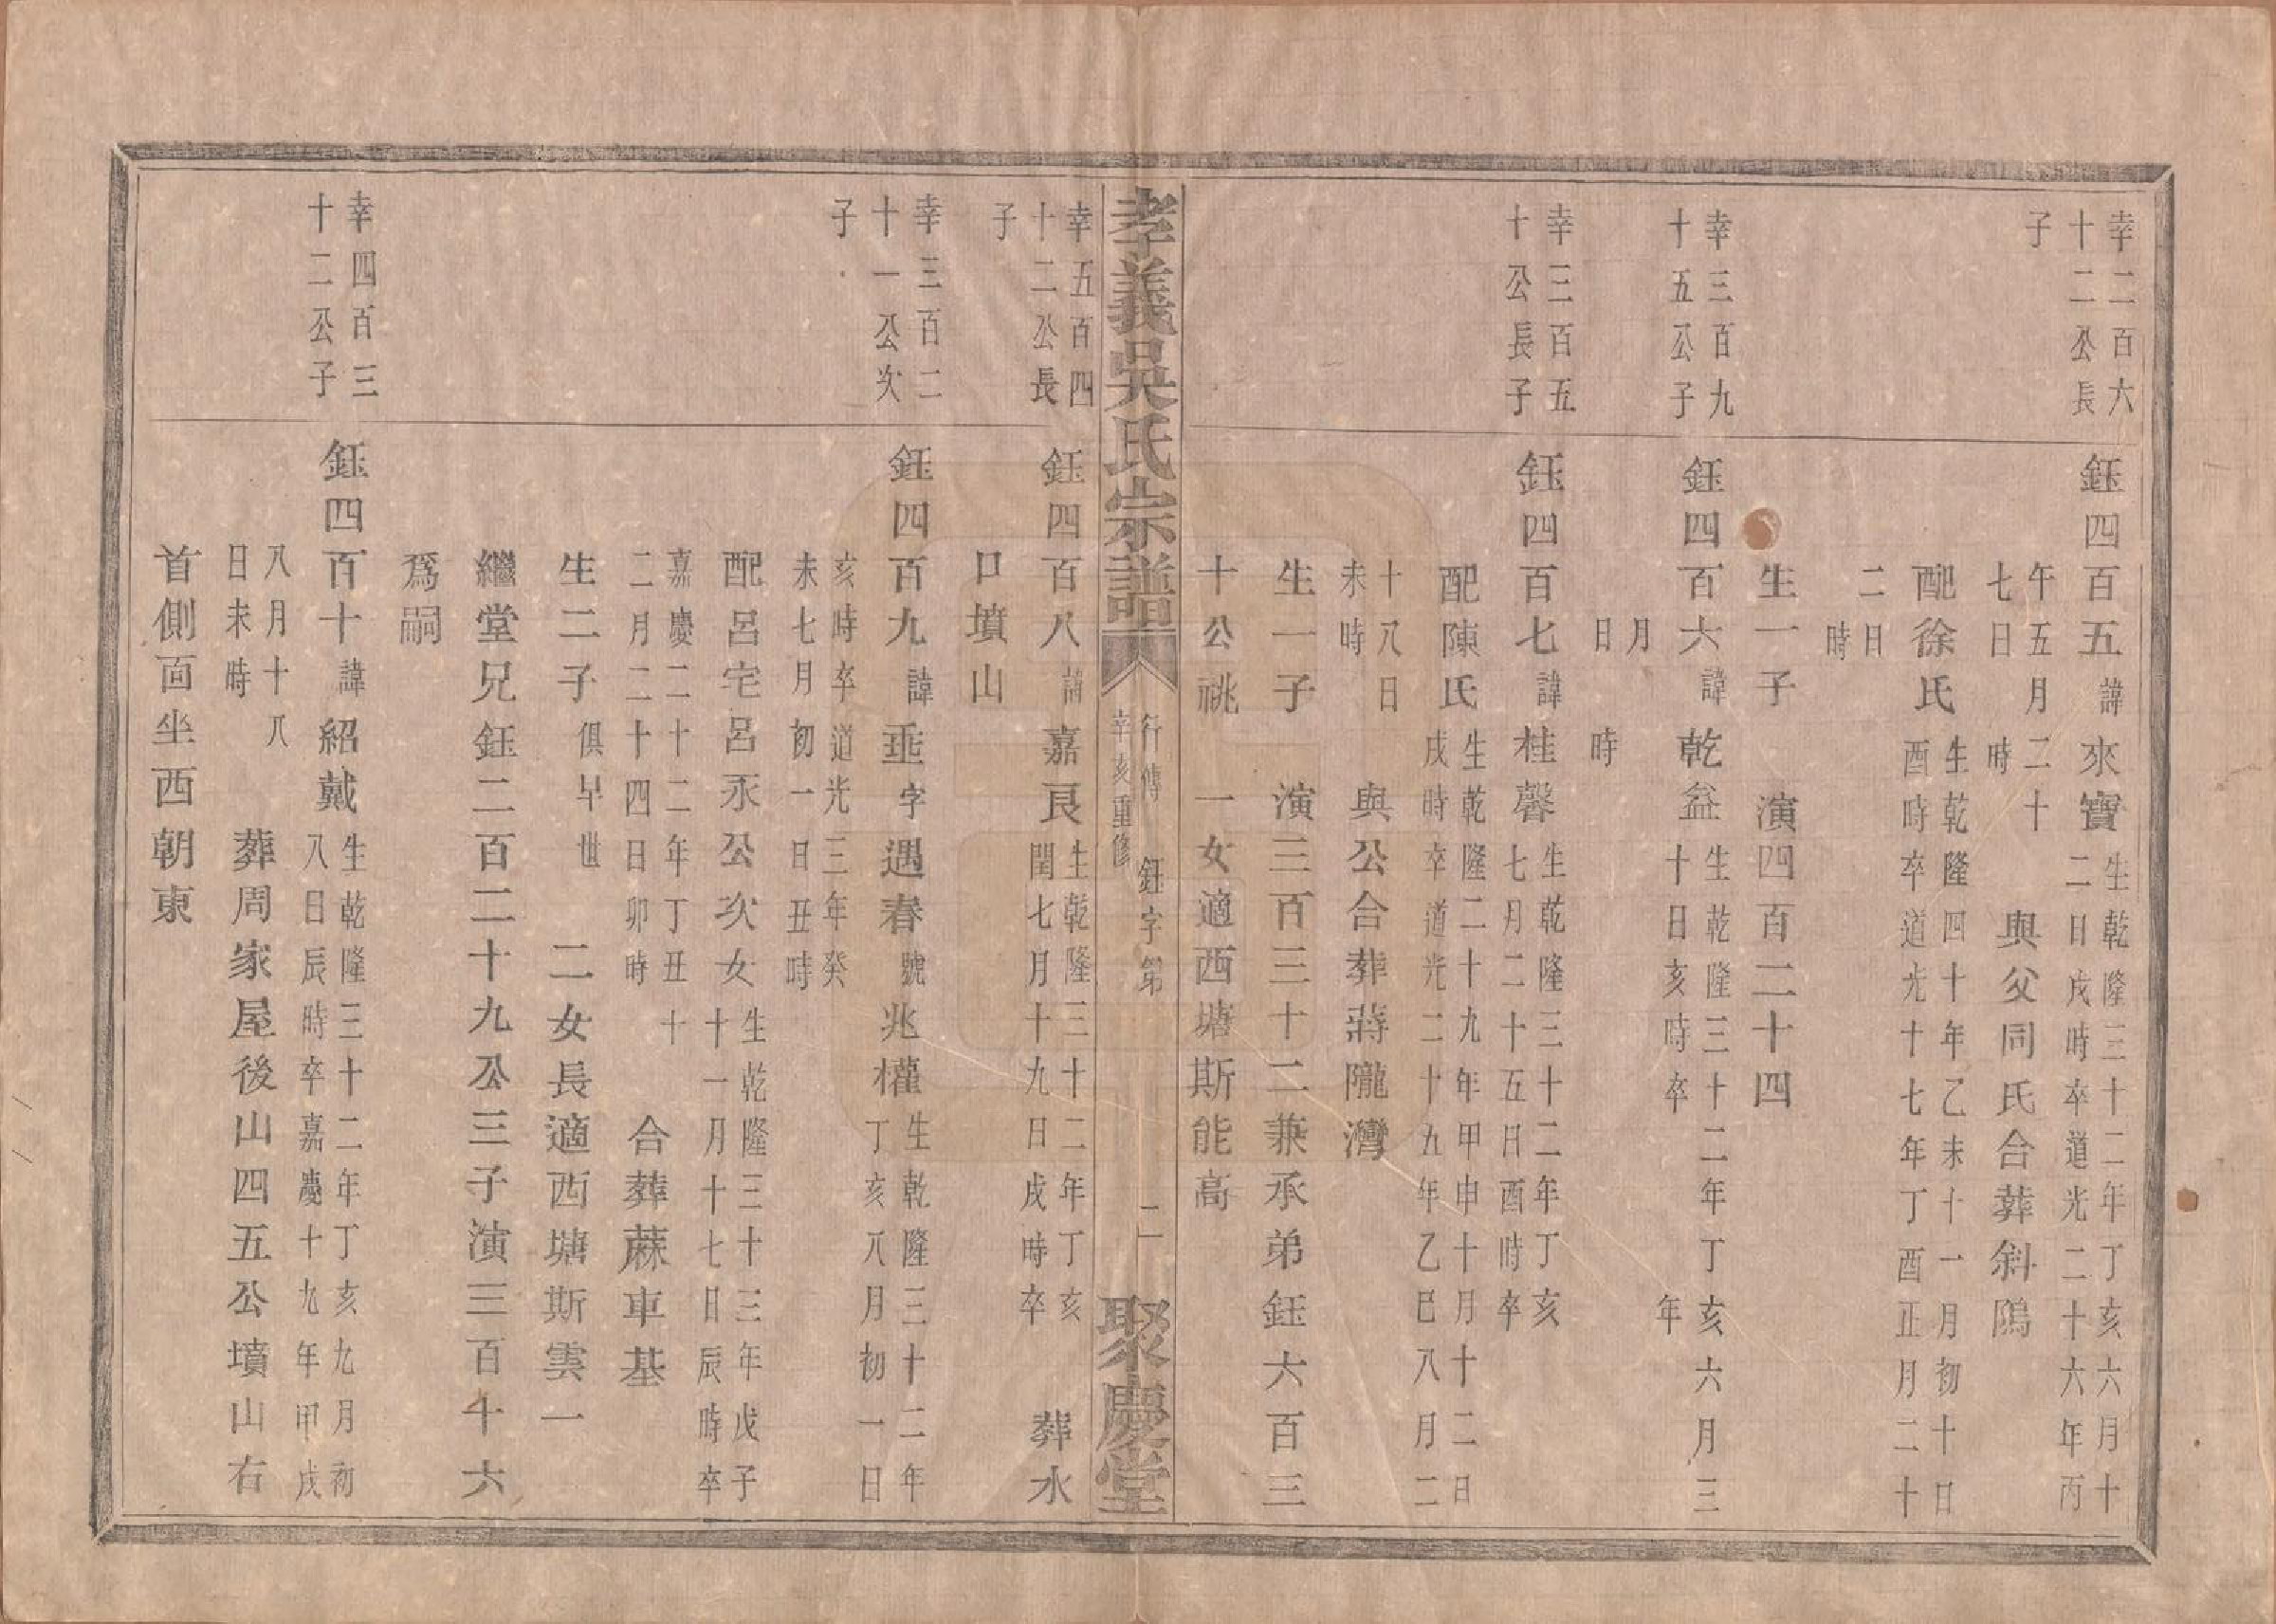 幸二百六
十二公長
子
鈺四百五諱來寶生乾隆三十二年丁亥六月十
二日戌時卒道光二十六年丙
午五月二十
七日 時
與父同氏合葬斜隖
配徐氏生乾隆四十年乙未十一月初十日
酉時卒道光十七年丁酉正月二十
二日
時
生一子 演四百二十四
幸三百九
十五公子
鈺四百六諱乾益生乾隆三十二年丁亥六月三
十日亥時卒 年
月
日 時
幸三百五
十公長子
鈺四百七諱桂馨生乾隆三十二年丁亥
七月二十五日酉時卒
配陳氏生乾隆二十九年甲申十月十二日
戌時卒道光二十五年乙巳八月二
十八日
未時
與公合葬蔣隴灣
生一子 演三百三十二兼承弟鈺六百三
十公祧 一女適西塘斯能高
孝義吳氏宗譜
行傳 鈺字第 二
辛亥重修
聚慶堂
幸五百四
十二公長
子
鈺四百八諱嘉良生乾隆三十二年丁亥
閏七月十九日戌時卒 葬水
口墳山
幸三百二
十一公次
子
鈺四百九諱垂字遇春號兆權生乾隆三十二年
丁亥八月初一日
亥時卒道光三年癸
未七月初一日丑時
配呂宅呂永公次女生乾隆三十三年戊子
十一月十七日辰時卒
嘉慶二十二年丁丑十
二月二十四日卯時
合葬蔴車基
生二子俱早世 二女長適西塘斯雲一
繼堂兄鈺二百二十九公三子演三百十六
爲嗣
幸四百三
十二公子
鈺四百十諱紹戴生乾隆三十二年丁亥九月初
八日辰時卒嘉慶十九年甲戌
八月十八
日未時
葬周家屋後山四五公墳山右
首側面坐西朝東